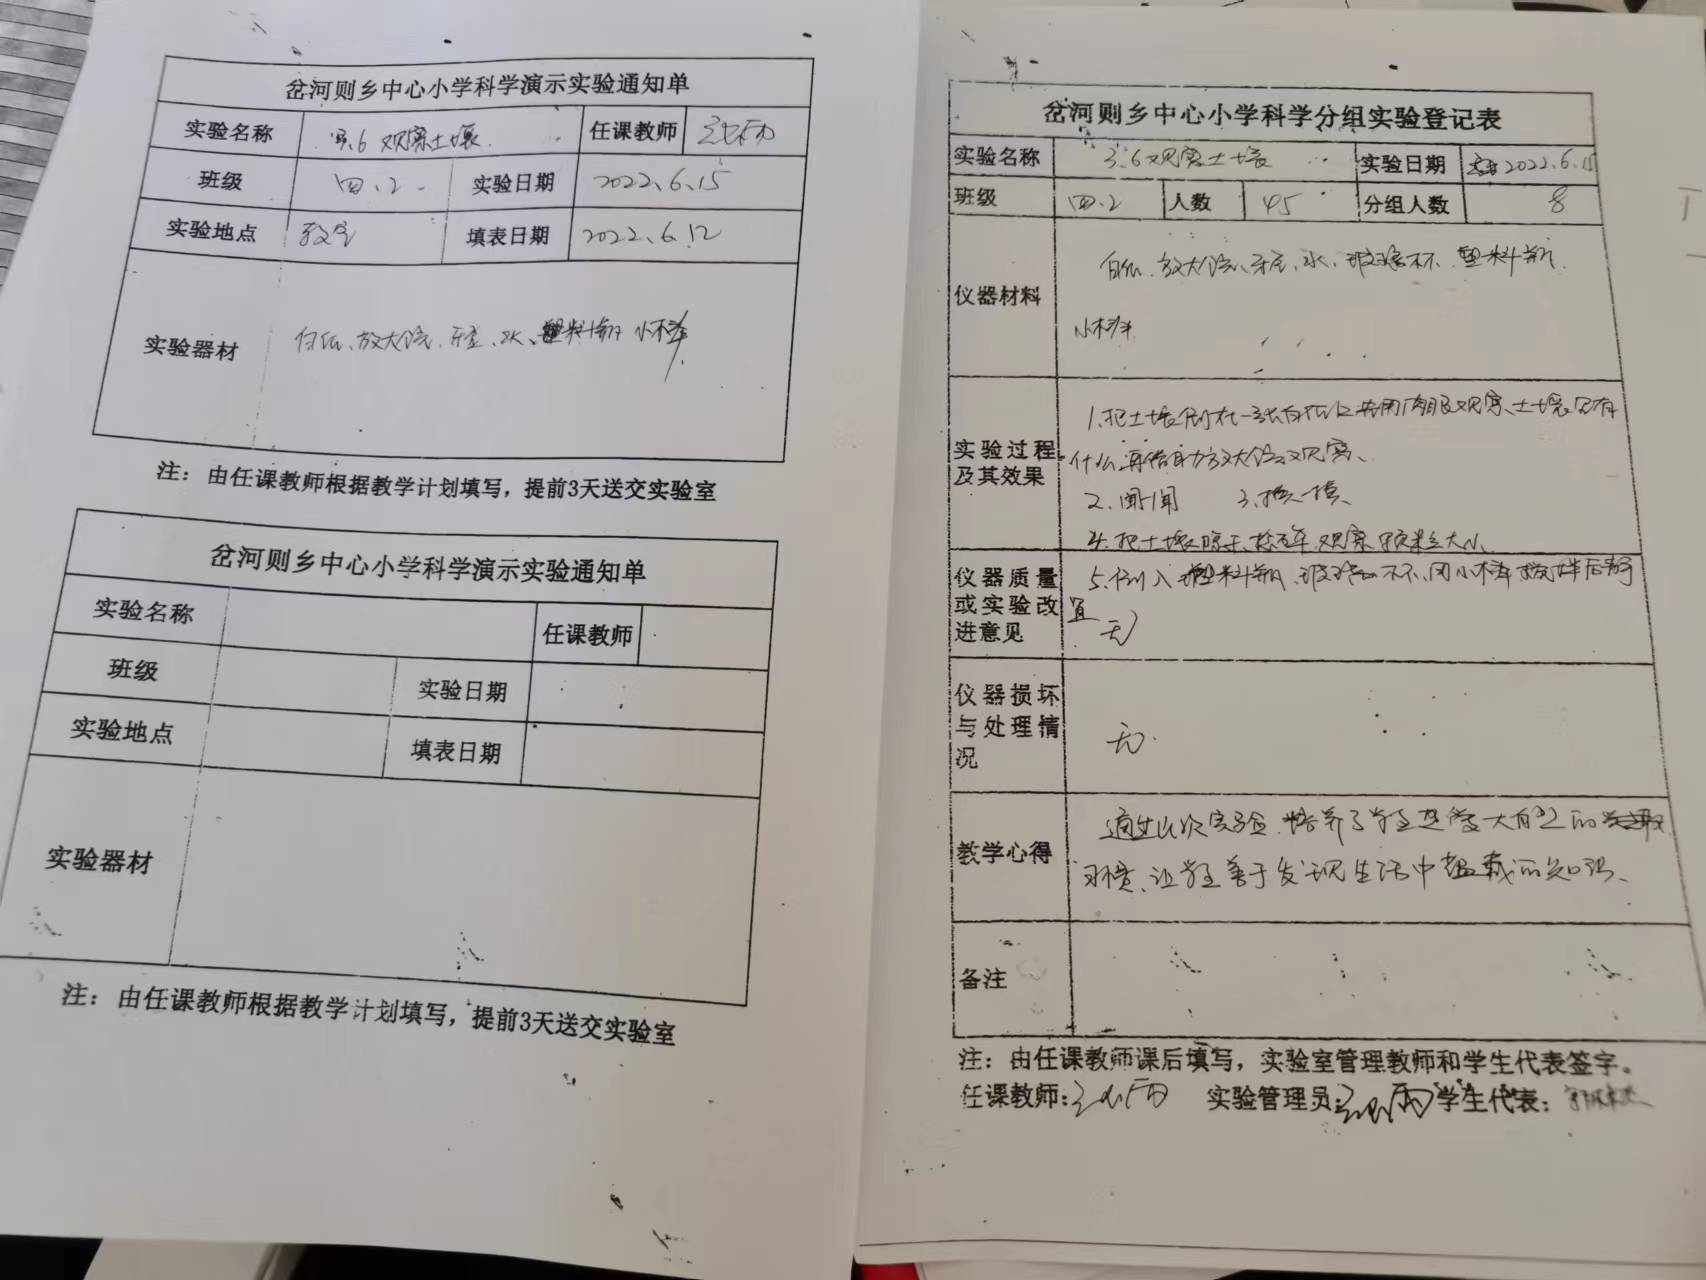 岔河则乡中心小学科学演示实验通知单
实验名称 3.6 观察土壤 任课教师
班级 四.2 实验日期 2022.6.15
实验地点 教室 填表日期 2022.6.12
实验器材 白纸、放大镜、牙签、水、塑料瓶 小木棒
注：由任课教师根据教学计划填写，提前3天送交实验室
岔河则乡中心小学科学演示实验通知单
实验名称 任课教师
班级 实验日期
实验地点 填表日期
实验器材
注：由任课教师根据教学计划填写，提前3天送交实验室
岔河则乡中心小学科学分组实验登记表
实验名称 3.6观察土壤 实验日期 2022.6.15
班级 四.2 人数 45 分组人数 8
仪器材料 白纸、放大镜、牙签、水、玻璃杯、塑料瓶、
小木棒
实验过程及其效果
1.把土壤倒在一张白纸上 先用肉眼观察、土壤里有
什么 再借助放大镜观察、
2.闻一闻 3.摸一摸、
4.把土壤晾干、捻开 观察颗粒大小、
5.倒入塑料瓶、玻璃杯、用小木棒搅拌后静
置
仪器质量或实验改进意见 无
仪器损坏与处理情况 无.
教学心得 通过此次实验、培养了学生热爱大自然的
习惯、让学生善于发现生活中蕴藏的知识、
备注
注：由任课教师课后填写，实验室管理教师和学生代表签字。
任课教师: 实验管理员: 学生代表: